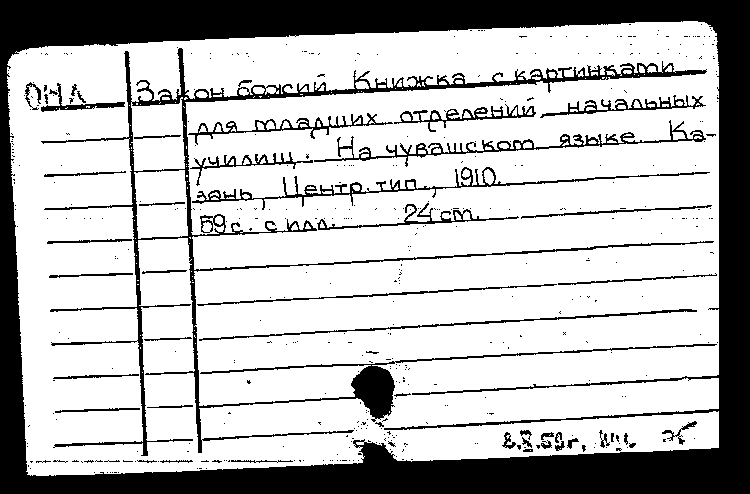 ОНЛ Закон божий. Книжка с картинками
для младших отделений начальных
училищ. На чувашском языке. Ка-
зань, Центр. тип., 1910.
59 с. с илл. 24 cm.